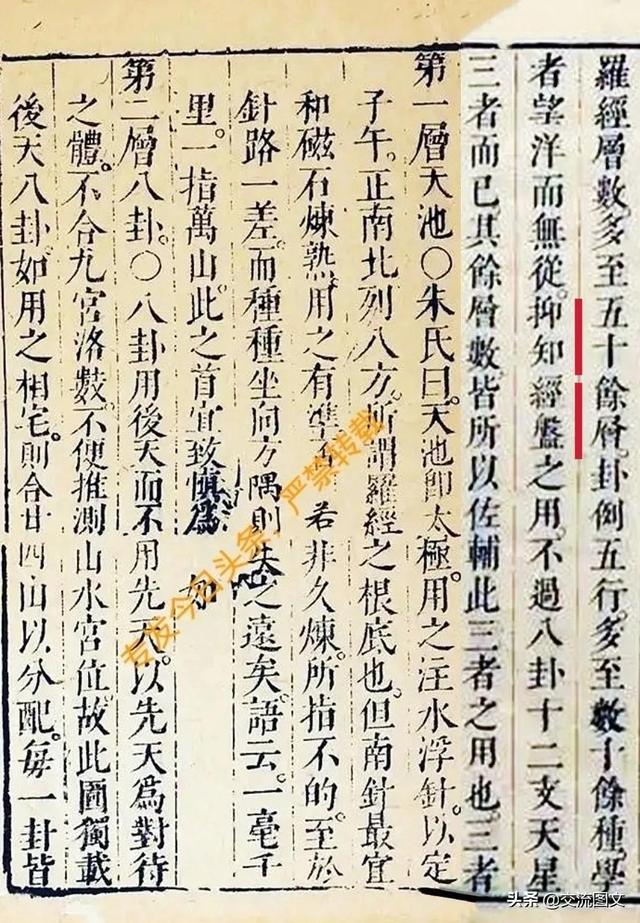 羅經層數。多至五十餘層。卦例五行。多至數十餘種。學
者望洋而無從。抑知經盤之用。不過八卦十二支天星
三者而已其餘層數皆所以佐輔此三者之用也。三者
第一層天池〇朱氏曰。天池卽太極。用之注水浮針。以定
子午。正南北列八方。所謂羅經之根底也。但南針最宜
和磁石煉熟。用之有準。若非久煉。所指不的。至於
針路一差。而種種坐向方隅。則失之遠矣。語云。一毫千
里。一指萬山。此之首宜致慎爲
第二層八卦。〇八卦用後天而不用先天。以先天爲對待
之體。不合九宮洛數。不便推測山水宮位。故此圖獨載
後天八卦。如用之相宅。則合廿四山以分配。每一卦皆
专发今日头条,严禁转载
头条 @交流图文